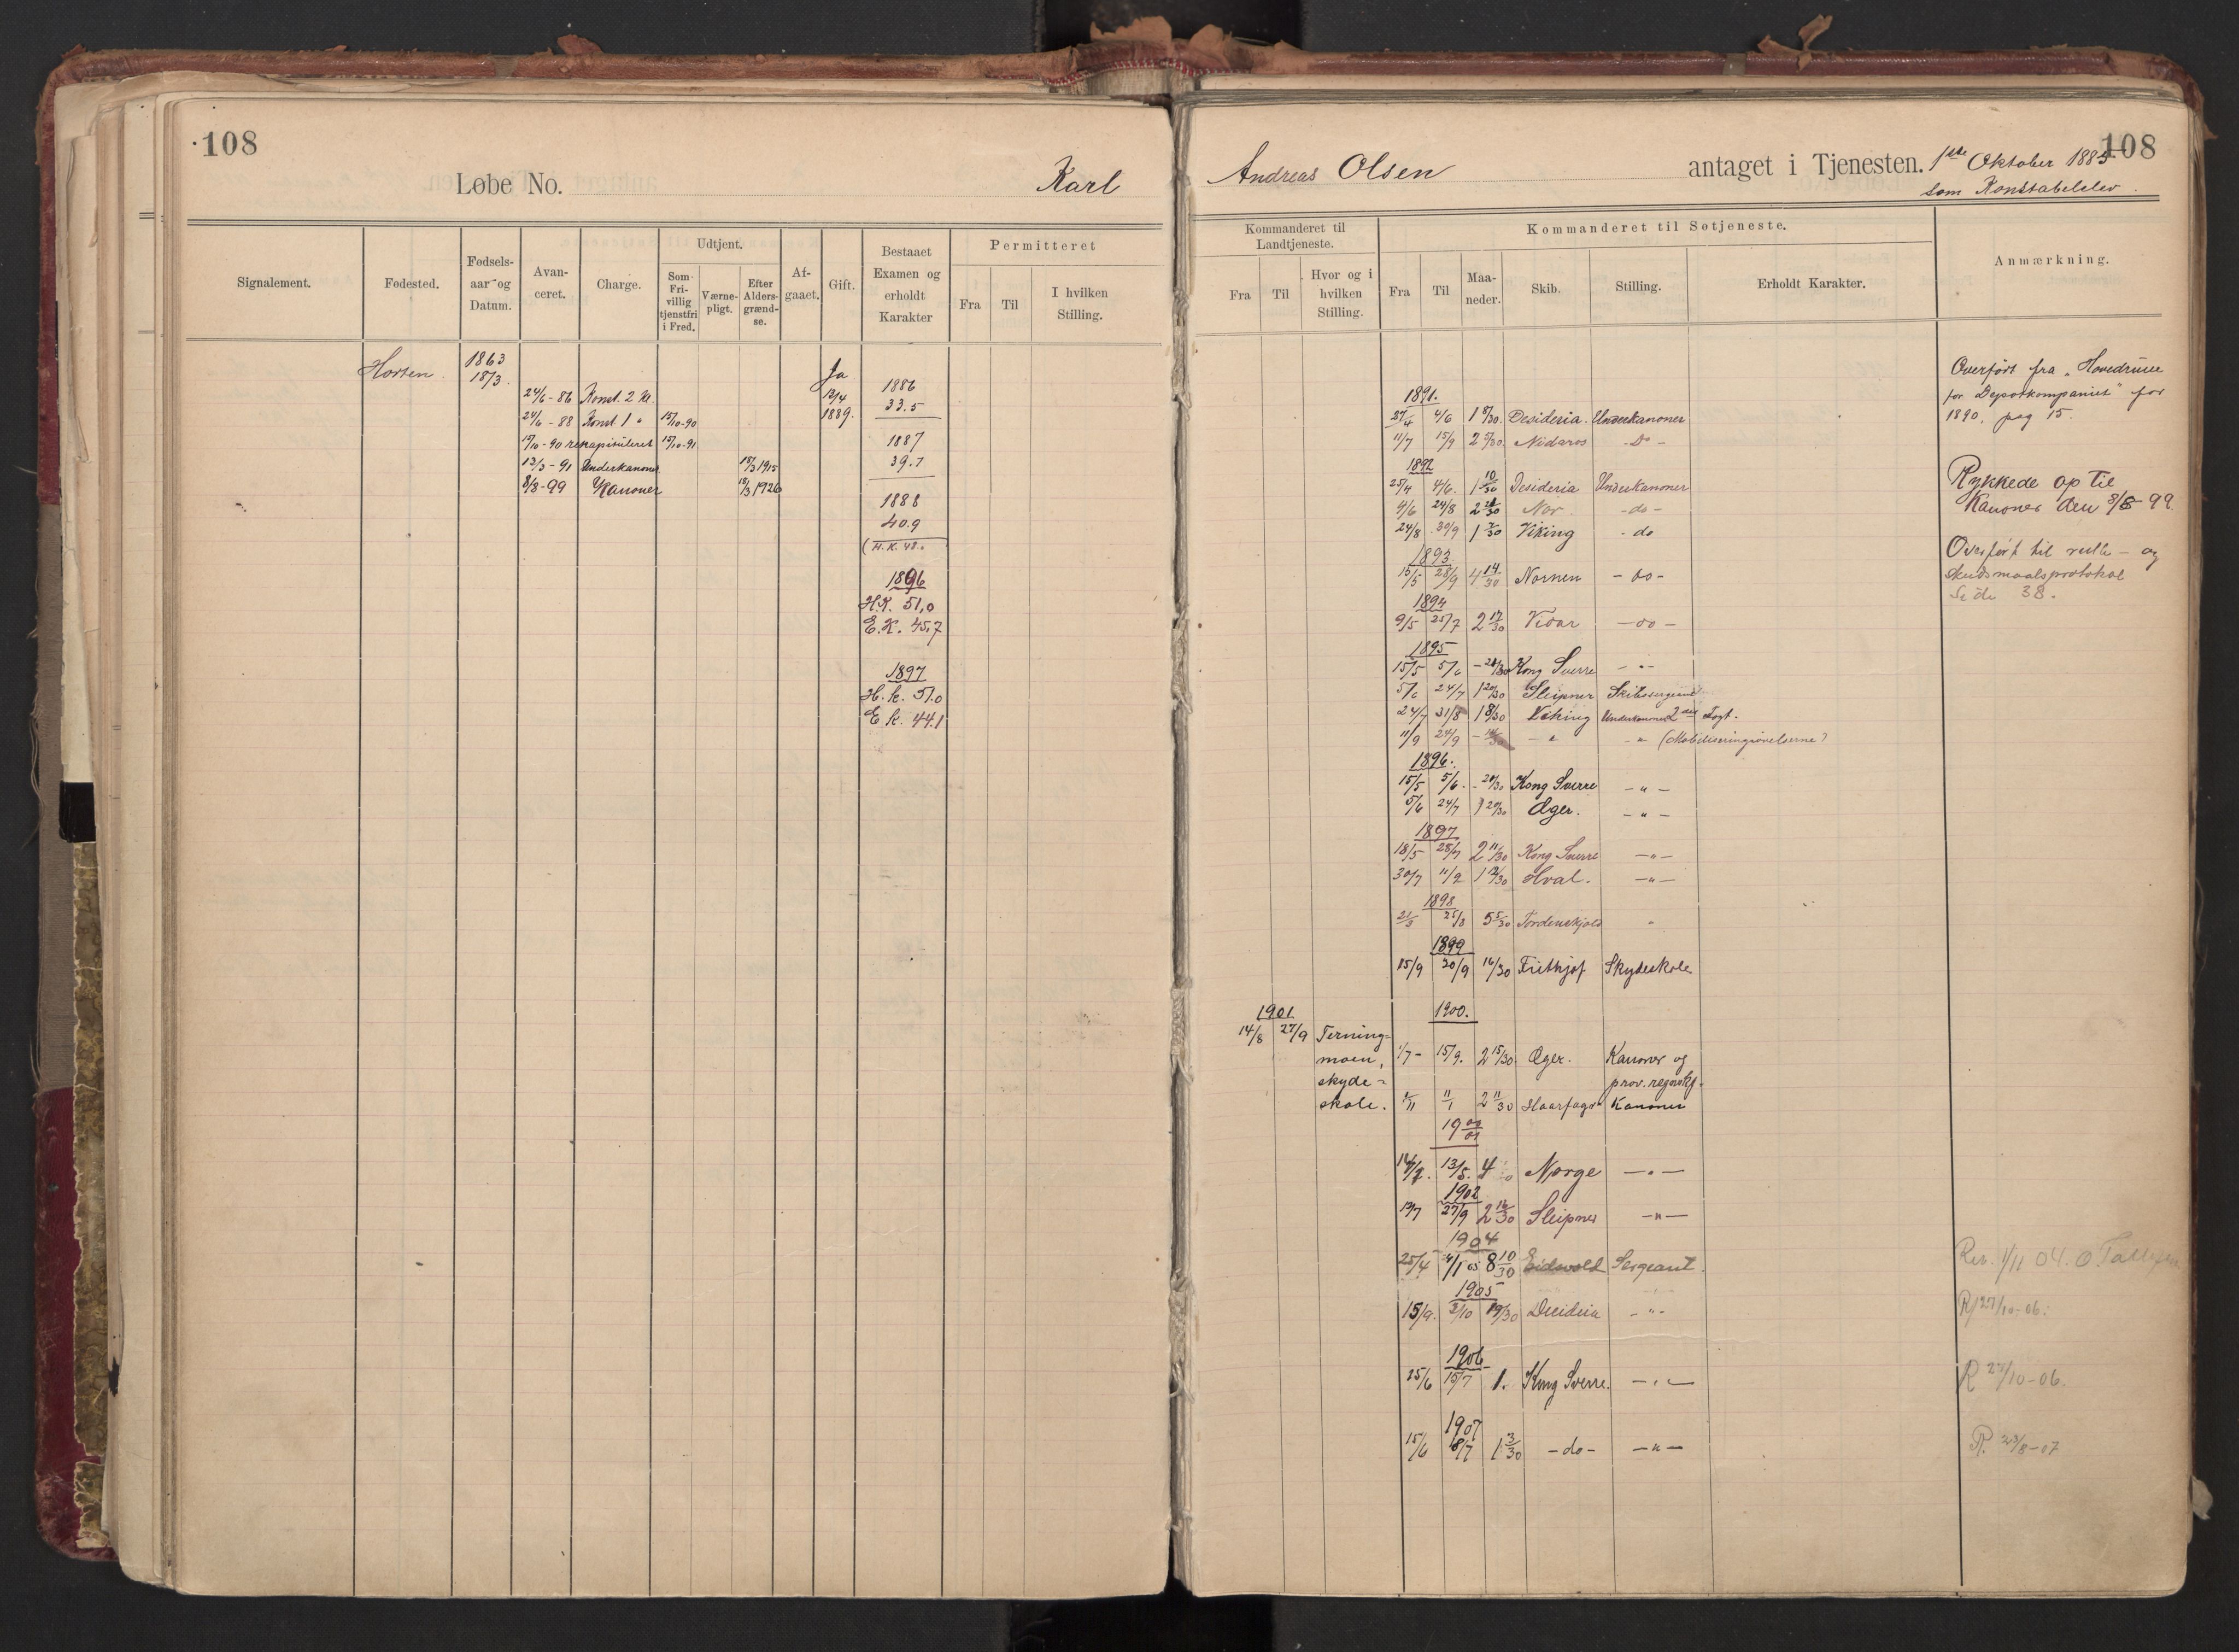 108
Løbe No. Karl
Signalement. Fødested. Fødsels-aar og Datum. Avan-ceret. Charge. Udtjent. Af-gaaet. Gift. Bestaaet Examen og erholdt Karakter Permitteret
Som Fri-villig tjenstfri i Fred. Værne-pligt. Efter Alders-grænd-se. Fra Til I hvilken Stilling.
Horten. 1863 Ja
18/3. 12/4 1886
24/6 - 86 Konst. 2 Kl. 1889. 33.5
24/6 - 88 Konst 1 " 15/10-90
15/10-90 rekapituleret 15/10-91 1887
13/3 - 91 Underkanoner 18/3 1915 39.7
8/8-99 Kanoner 18/3 1926
1888
40.9
(H.K. 48.
1896
H.K. 51,0
E.K. 45,7
1897
H.k. 51.0
E k. 44.1
Andreas Olsen antaget i Tjenesten. 1ste Oktober 1885 108
som Konstabelelev.
Kommanderet til Landtjeneste. Kommanderet til Søtjeneste. Anmærkning.
Fra Til Hvor og i hvilken Stilling. Fra Til Maa-neder. Skib. Stilling. Erholdt Karakter.
Overført fra "Hovedrulle
for Depotkompaniet" for
1890, pag 15.
1891.
27/4 4/6 1 8/30 Desideria. Underkanoner
11/7 15/9 2 5/30 Nidaros - Do -
1892
25/4 4/6. 1 10/30 Desideria Underkanoner
4/6 24/8 2 21/30 Nor - do -
24/8 30/9 1 7/30 Viking - do
Rykkede op til
Kanoner den 8/8-99.
1893.
15/5 28/9 4 14/30 Nornen - do -
Overført til rulle - og
skudsmaalsprotokol
Side 38.
1894
9/5 25/7 2 17/30 Vidar - do -
1895
15/5 5/6 - 21/30 Kong Sverre - " -
5/6 24/7 1 20/30 Sleipner Skibssergeant
24/7 31/8 1 8/30 Viking Underkanoner 2det Togt.
11/9 24/9 - 14/30 - " - " (Mobiliseringsøvelserne)
1896.
15/5 5/6. - 21/30 Kong Sverre - " -
5/6 24/7 1 20/30 Æger. - " -
1897
18/5 28/7 2 11/30 Kong Sverre - " -
30/7 11/9 1 12/30 Hval. - " -
1898
21/3 25/8 5 5/30 Tordenskjold "
1899
15/9 30/9 16/30 Frithjof Skydeskole
1901 1900.
14/8 27/9 Terning-
moen, 1/7 - 15/9. 2 15/30 Æger. Kanoner og
skyde- prov. regnskf.
skole. 1/11 11/1 2 11/30 Haarfagre Kanoner
19 00/01
14/1. 13/5. 4 Norge - " -
1902
19/7 27/9 2 16/30 Sleipner - " -
1904
25/4 4/1 05 8 10/30 Eidsvold Sergeant. Rev. 1/11 04.
1905
15/9. 3/10 19/30 Desideria - " - R 27/10-06.
1906
25/6 15/7 1. Kong Sverre. - " - R 27/10-06.
1907
15/6 18/7 1 3/30 - do - - " - R. 23/8-07